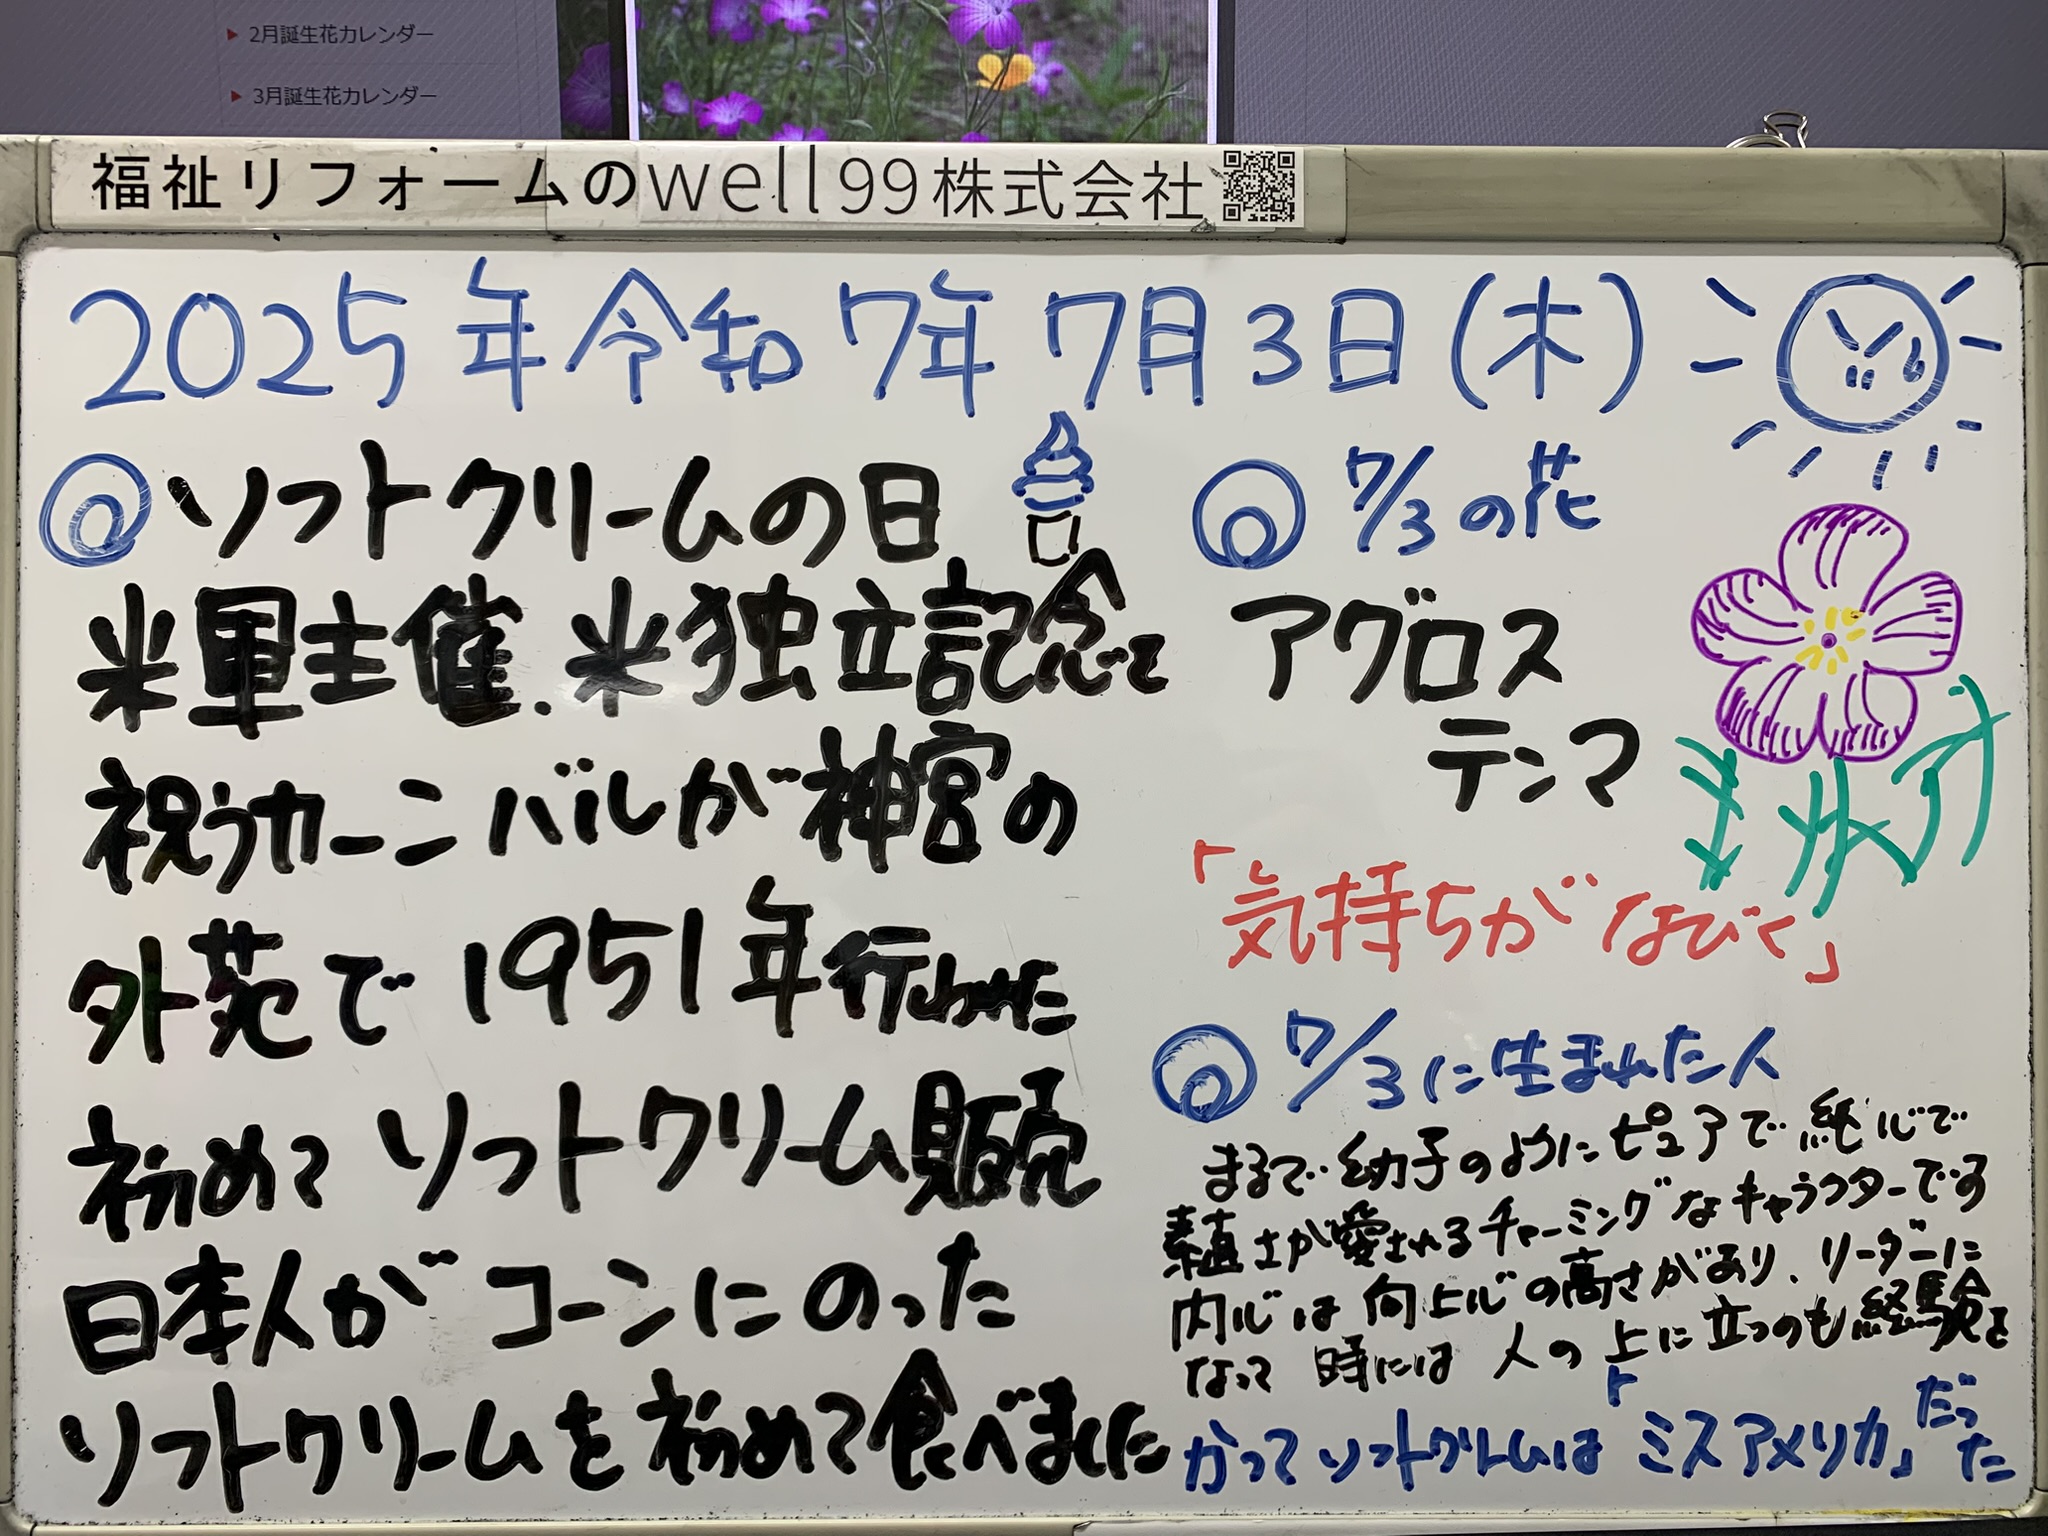 2月誕生花カレンダー
3月誕生花カレンダー
福祉リフォームのwell99株式会社
2025年令和7年7月3日(木)
ソフトクリームの日
米軍主催.米独立記念で
祝うカーニバルが神宮の
外苑で1951年行われた
初めてソフトクリーム販売
日本人がコーンにのった
ソフトクリームを初めて食べました
7/3の花
アグロス
テンマ
「気持ちがなびく」
7/3に生まれた人
まるで幼子のようにピュアで純心で
素直さが愛されるチャーミングなキャラクターです
内心は向上心の高さがあり、リーダーに
なって時には人の上に立つのも経験と
かつてソフトクリームは「ミスアメリカ」だった